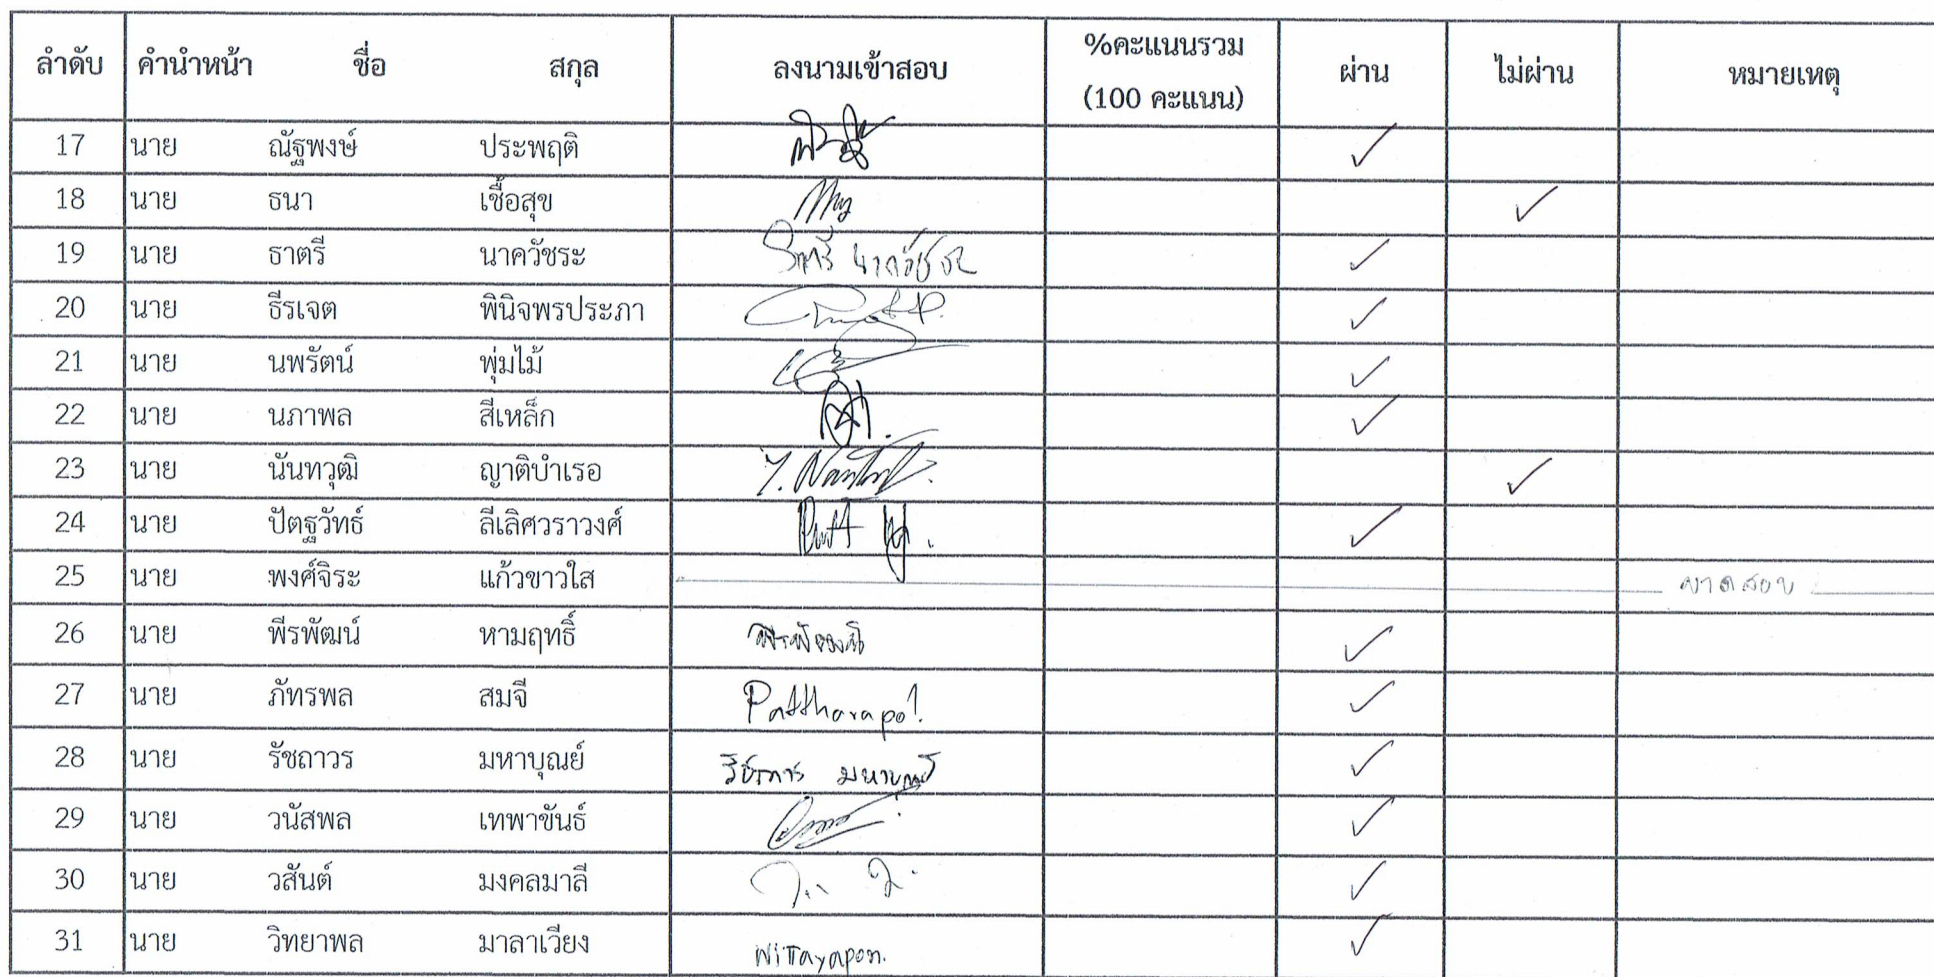 ลำดับ คำนำหน้า ชื่อ สกุล ลงนามเข้าสอบ %คะแนนรวม (100 คะแนน) ผ่าน ไม่ผ่าน หมายเหตุ
17 นาย ณัฐพงษ์ ประพฤติ ✓
18 นาย ธนา เชื้อสุข ✓
19 นาย ธาตรี นาควัชระ ธาตรี นาควัชระ ✓
20 นาย ธีรเจต พินิจพรประภา ✓
21 นาย นพรัตน์ พุ่มไม้ ✓
22 นาย นภาพล สีเหล็ก ✓
23 นาย นันทวุฒิ ญาติบำเรอ ✓
24 นาย ปัตฐวัทธ์ ลีเลิศวราวงศ์ ✓
25 นาย พงศ์จิระ แก้วขาวใส ขาดสอบ
26 นาย พีรพัฒน์ หามฤทธิ์ ✓
27 นาย ภัทรพล สมจี Pattharapol. ✓
28 นาย รัชถาวร มหาบุณย์ รัชถาวร มหาบุณย์ ✓
29 นาย วนัสพล เทพาขันธ์ ✓
30 นาย วสันต์ มงคลมาลี ✓
31 นาย วิทยาพล มาลาเวียง Wittayapon. ✓